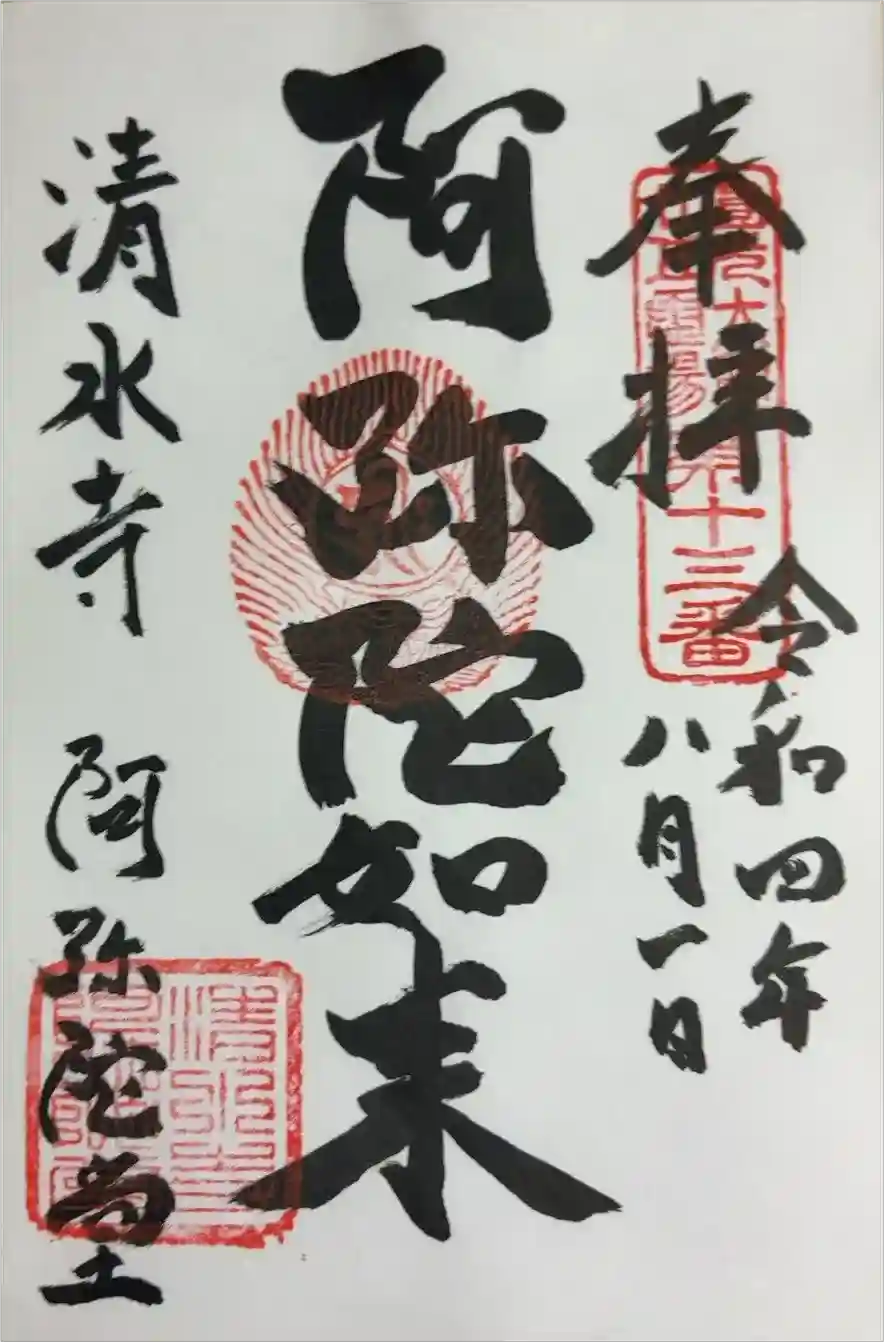 奉拝
第十三番
令和四年
八月一日
阿弥陀如来
清水寺 阿弥陀堂